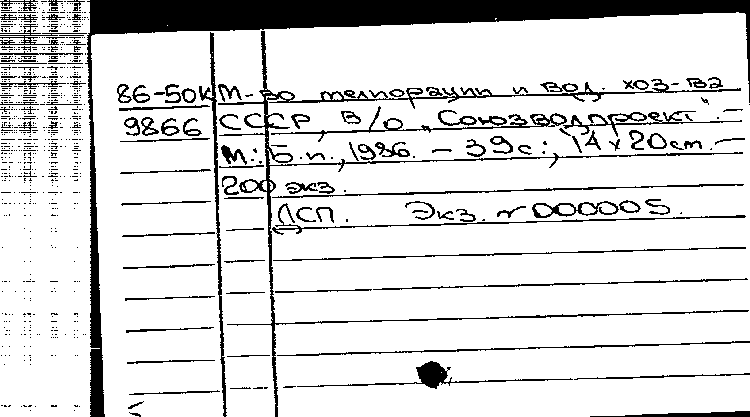 86-50к М-во мелиорации и вод. хоз-ва
9866 СССР, В/О „Союзводпроект". —
М.: Б.и., 1986. — 39с.; 14 х 20 см. —
200 экз.
ДСП. Экз. № 000005.